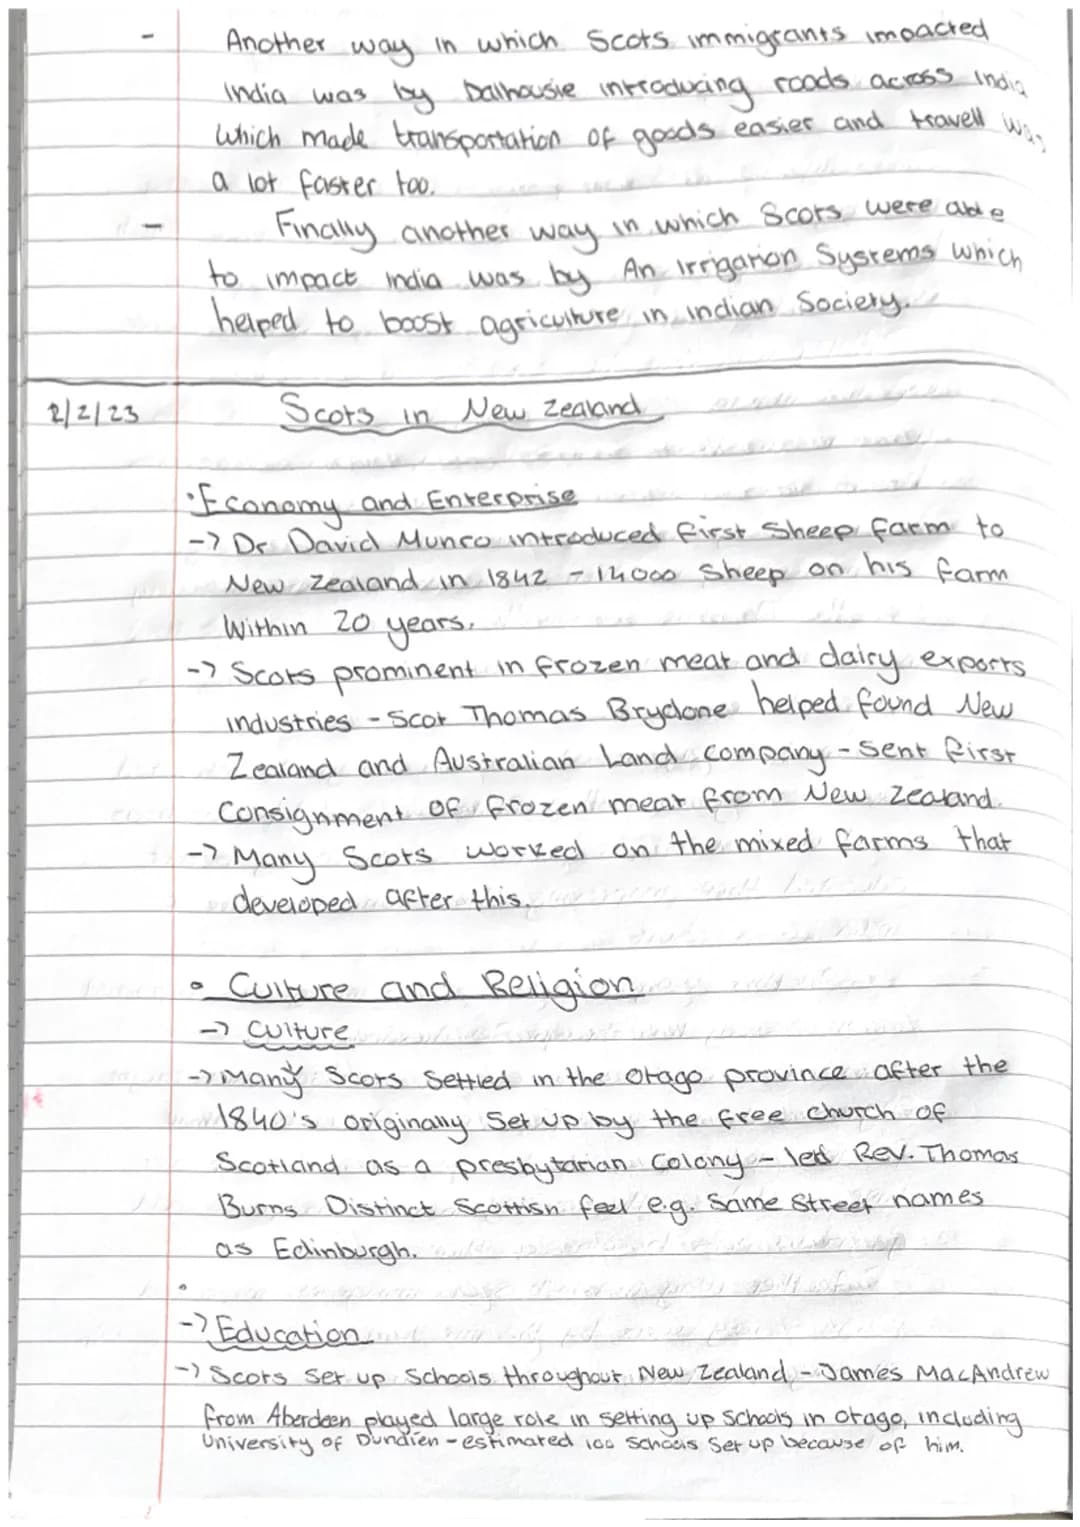 - Another way in which Scots immigrants impacted
India was by Dalhousie introducing roads across India
which made transportation of goods easier and travell was
a lot faster too.
- Finally another way in which Scots were able
to impact india was by An Irrigation Systems which
helped to boost agriculture in indian Society.
2/2/23 Scots in New Zealand
• Economy and Enterprise
-> Dr David Munro introduced first Sheep farm to
New Zealand in 1842 - 14000 Sheep on his farm
Within 20 years.
-> Scots prominent in frozen meat and dairy exports
industries - Scot Thomas Brydone helped found New
Zealand and Australian Land company - Sent first
Consignment of frozen meat from New Zealand.
-> Many Scots worked on the mixed farms that
developed after this.
• Culture and Religion
-> Culture
-> Many Scots Settled in the Otago province after the
1840's originally Set up by the free church of
Scotland as a presbytarian Colony - led Rev. Thomas
Burns Distinct Scottish feel e.g. Same Street names
as Edinburgh.
•
-> Education
-> Scots Set up Schools throughout New Zealand - James MacAndrew
from Aberdeen played large role in setting up Schools in Otago, including
University of Dundien - estimated 100 Schools Set up because of him.